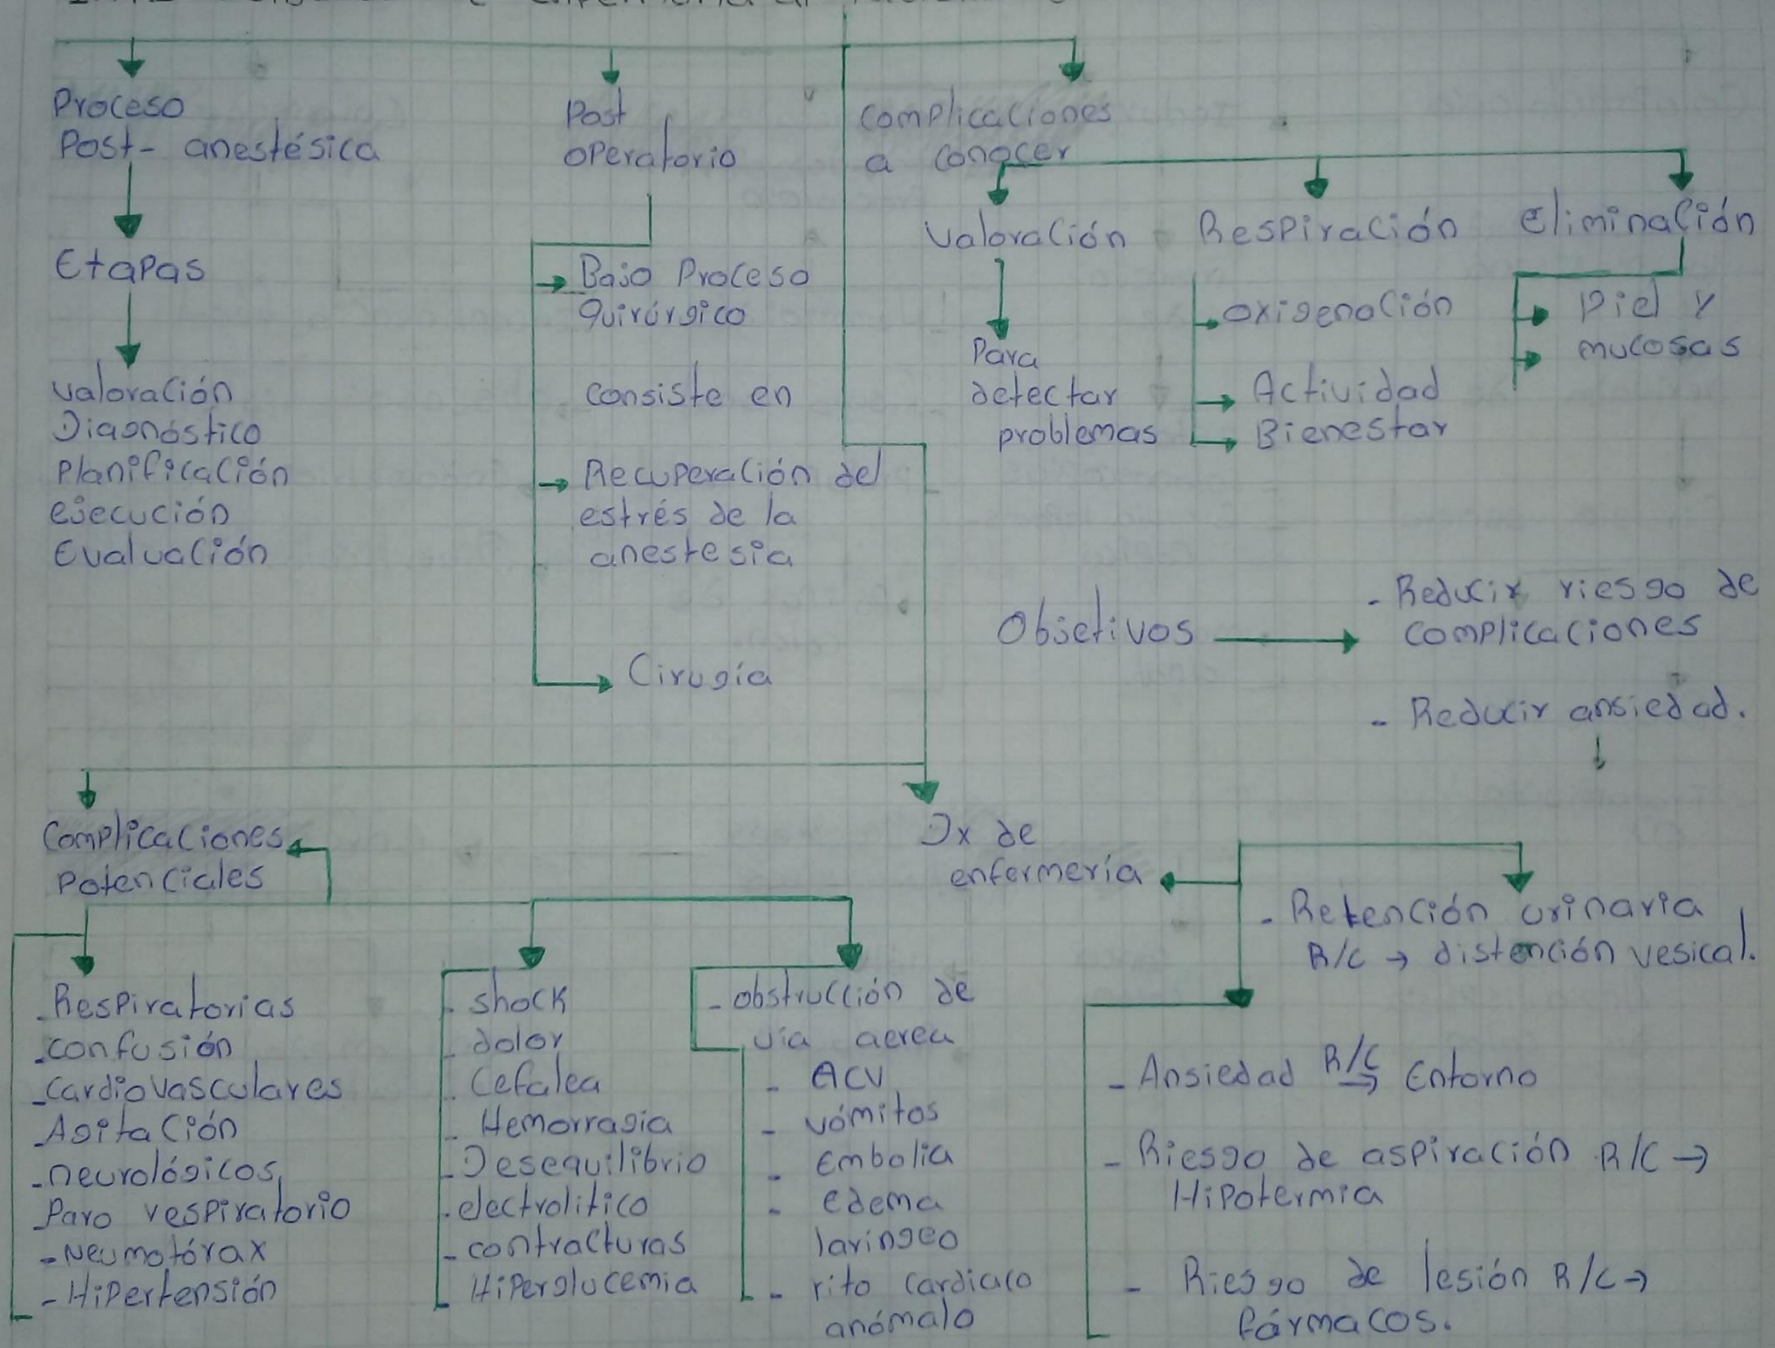 Proceso
Post- anestésica
Etapas
valoración
Diagnóstico
Planificación
ejecución
Evaluación
Post
operatorio
Bajo Proceso
Quirúrgico
consiste en
Recuperación del
estrés de la
anestesia
Cirugía
Complicaciones
a conocer
Valoración
Para
detectar
problemas
Respiración
oxigenación
Actividad
Bienestar
Eliminación
Piel y
mucosas
Objetivos
- Reducir riesgo de
complicaciones
- Reducir ansiedad.
Complicaciones
Potenciales
- Respiratorias
- confusión
- cardiovasculares
- Agitación
- neurológicos
- Paro respiratorio
- Neumotórax
- Hipertensión
- shock
- dolor
- Cefalea
- Hemorragia
- Desequilibrio
- electrolitico
- contracturas
- Hiperglucemia
- obstrucción de
via aerea
- ACV
- vómitos
- Embolia
- edema
laringeo
- rito cardiaco
anómalo
Dx de
enfermería
- Retención urinaria
R/C → distención vesical.
- Ansiedad R/C → Entorno
- Riesgo de aspiración R/C →
Hipotermia
- Riesgo de lesión R/C →
fármacos.